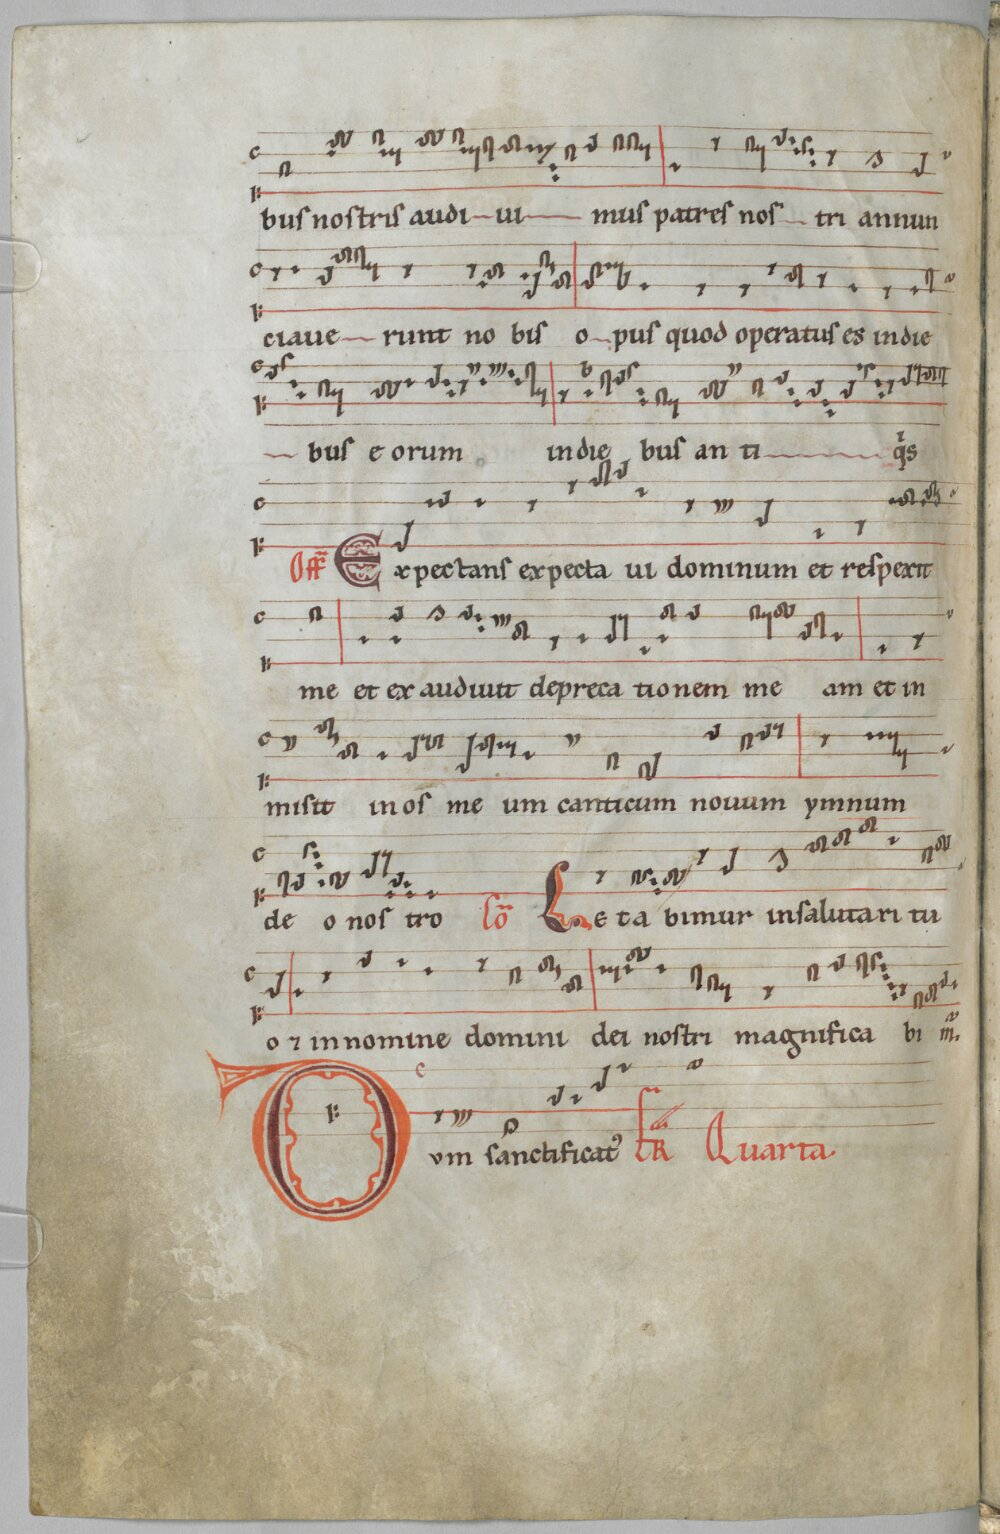 bus nostris audi ui mus patres nos tri annun
ciaue runt no bis o pus quod operatus es in die
bus e orum in die bus an ti q̄s
Off̄ Expectans expecta ui dominum et respexit
me et ex audiuit depreca tionem me am et in
misit in os me um canticum nouum ymnum
de o nos tro c̄o Le ta bimur in salutari tu
o ⁊ in nomine domini dei nostri magnifica bi m̄.
Dvm sanctificatꝰ Quarta